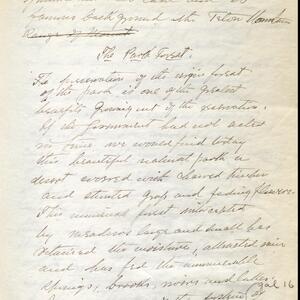 famous background the Teton Mountain
Range
The Park Forest.
The preservation of the virgin forest
of the park is one of the greatest
benefits growing out of the reservation.
If the Government had not acted
at once we would find today
this beautiful natural park a
desert covered with charred timber
and stunted grass and fading flowers.
This immense forest interspersed
by meadows large and small has
retained the moisture, attracted more
and has fed the innumerable
springs, brooks, rivers and lakes.
gal 16